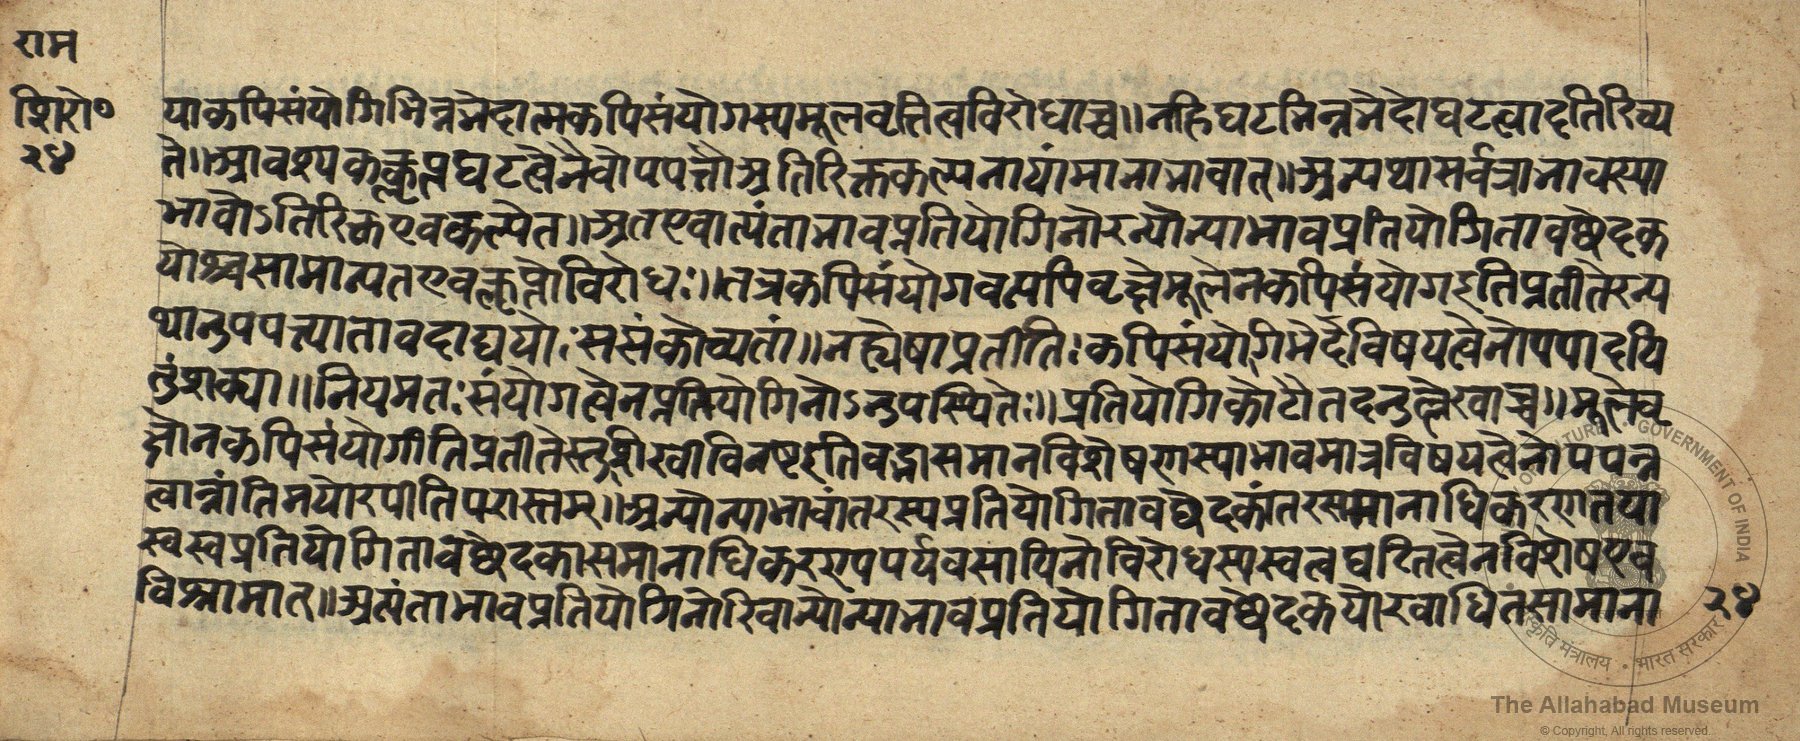 राम
शिरो०
२४
याकपिसंयोगिभिन्नभेदात्मकपिसंयोगस्यमूलवृत्तित्वविरोधाच्च॥नहिघटभिन्नभेदोघटत्वादतिरिच्य
ते॥आवश्यककॢप्तघटत्वेनैवोपपत्तौअतिरिक्तकल्पनायांमानाभावात्॥अन्यथासर्वत्राभावस्या
भावोऽतिरिक्तएवकल्पेत॥अतएवात्यंताभावप्रतियोगिनोरन्योन्याभावप्रतियोगितावछेदक
योश्चसामान्यतएवकॢप्तोविरोधः॥तत्रकपिसंयोगवत्यपिवृक्षेमूलेनकपिसंयोगइतिप्रतीतेरन्य
थानुपपत्त्यातावदाद्ययोःससंकोव्यतां॥नह्येषाप्रतीतिःकपिसंयोगिभेदविषयत्वेनोपपादयि
तुंशक्या॥नियमतःसंयोगत्वेनप्रतियोगिनोऽनुपस्थितेः॥प्रतियोगिकोटौतदनुल्लेखाच्च॥मूलेवृ
क्षोनकपिसंयोगीतिप्रतीतेस्तुशिखीविनष्टइतिवद्भासमानविशेषणस्याभावमात्रविषयत्वेनोपपन्न
त्वान्नांतिमयोरपीतिपरास्तम्॥अन्योन्याभावांतरस्यप्रतियोगितावछेदकांतरसमानाधिकरणतया
स्वस्वप्रतियोगितावछेदकासमानाधिकरण्यपर्यवसायिनोविरोधस्यस्वत्वघटितत्वेनविशेषएव
विश्रामात्॥अत्यंताभावप्रतियोगिनोरिवान्योन्याभावप्रतियोगितावछेदकयोरबाधितसामाना
२४
OF CULTURE • GOVERNMENT OF INDIA
संस्कृति मंत्रालय • भारत सरकार
The Allahabad Museum
© Copyright, All rights reserved.